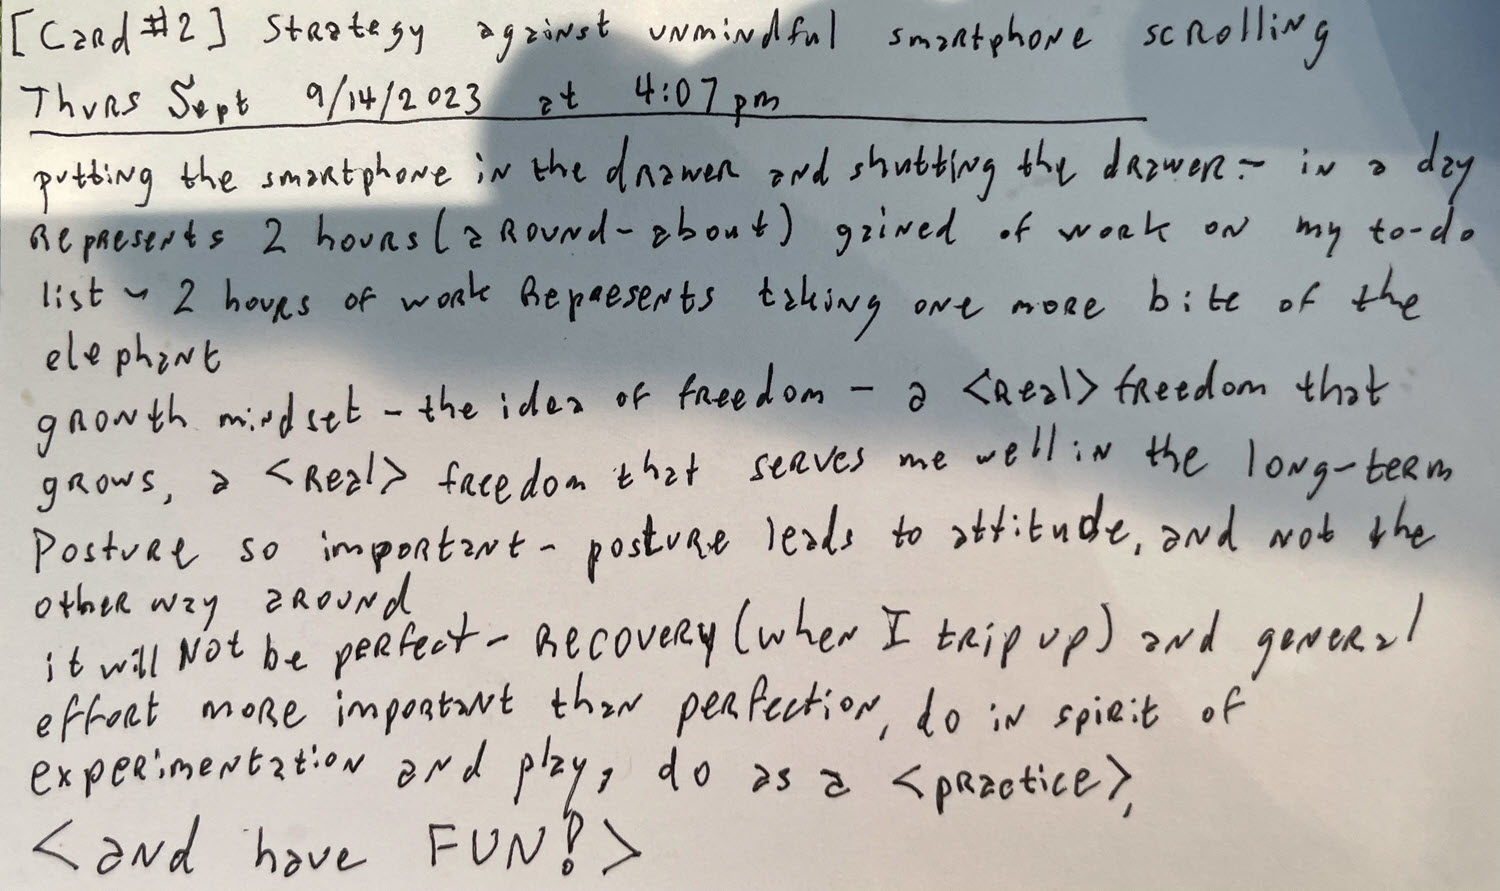 [Card #2] Strategy against unmindful smartphone scrolling
Thurs Sept 9/14/2023 at 4:07 pm
putting the smartphone in the drawer and shutting the drawer - in a day
represents 2 hours (around-about) gained of work on my to-do
list ~ 2 hours of work represents taking one more bite of the
elephant
growth mindset - the idea of freedom - a <real> freedom that
grows, a <real> freedom that serves me well in the long-term
Posture so important - posture leads to attitude, and not the
other way around
it will NOT be perfect - recovery (when I trip up) and general
effort more important than perfection, do in spirit of
experimentation and play, do as a <practice>,
<and have FUN!>